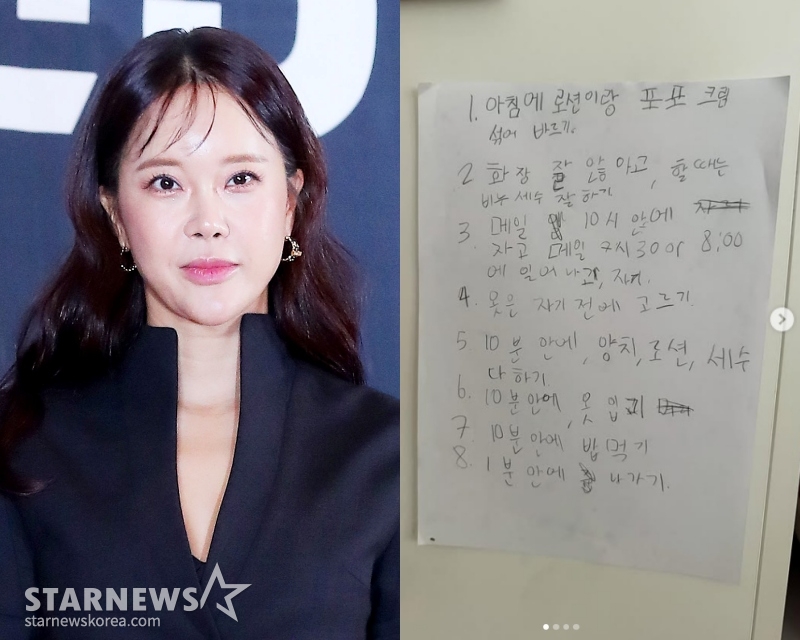 STARNEWS
starnewskorea.com
1. 아침에 로션이랑 포포 크림
섞어 바르기.
2 화장 잘 안하고, 할때는
비누세수 잘 하기
3 메일 10시 안에
자고 메일 7시30 or 8:00
에 일어나고, 자기.
4. 옷은 자기전에 고르기
5 10분 안에, 양치,로션, 세수
다하기
6. 10분안에, 옷 입기
7 10분안에 밥먹기
8. 1분안에 나가기.